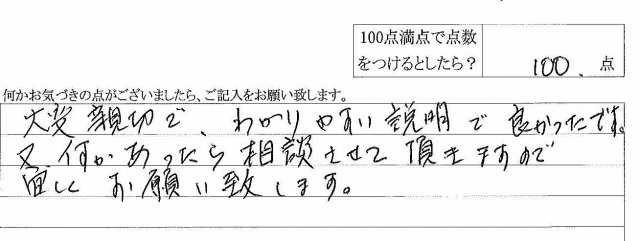 100点満点で点数
をつけるとしたら？ 100. 点
何かお気づきの点がございましたら、ご記入をお願い致します。
大変親切で、わかりやすい説明で良かったです。
又、何かあったら相談させて頂きますので
宜しくお願い致します。